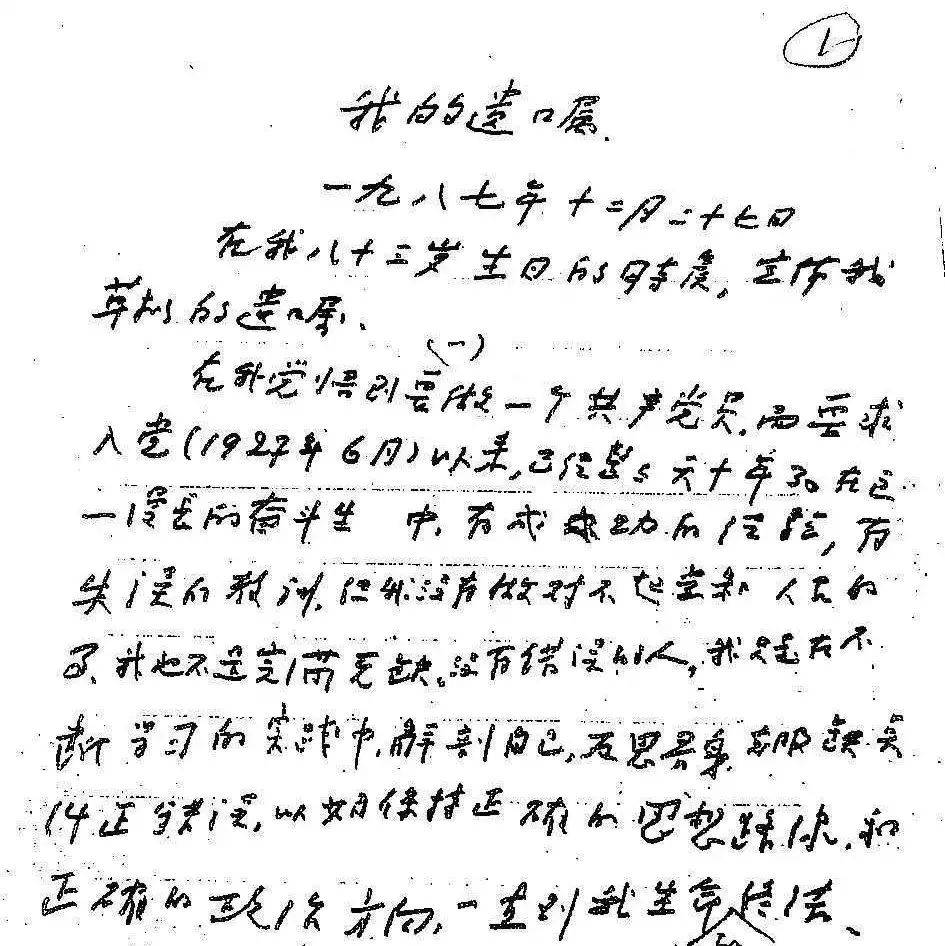 1
我的遗嘱
一九八七年十二月二十七日
在我八十三岁生日的时候，宣布我
草拟的遗嘱、
(一)
在我觉悟到要做一个共产党员，而要求
入党(1927年6月)以来，已经整整六十年了。在这
一漫长的奋斗生 中，有成功的经验，有
失误的教训，但我没有做对不起党和人民的
事、我也不是完满无缺。没有错误的人，我是在不
断学习的实践中，解剖自己，反思 克服缺点
纠正错误，以期保持正确的思想路线，和
正确的政治方向，一直到我生命终结、